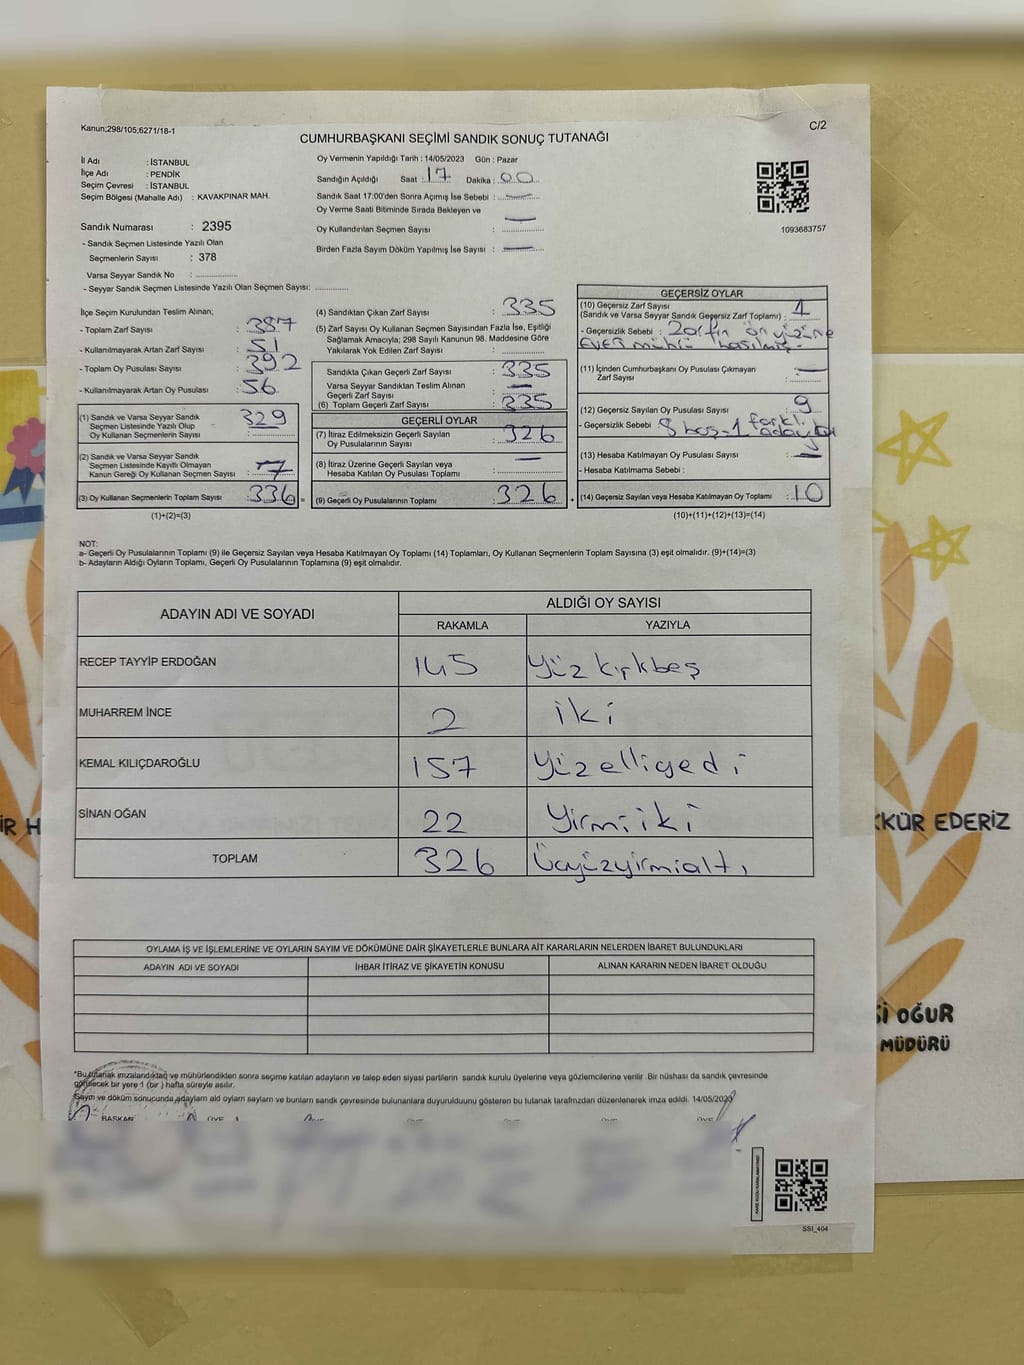 Kanun;298/105;6271/18-1
C/2
CUMHURBAŞKANI SEÇİMİ SANDIK SONUÇ TUTANAĞI
İl Adı : İSTANBUL
İlçe Adı : PENDİK
Seçim Çevresi : İSTANBUL
Seçim Bölgesi (Mahalle Adı) : KAVAKPINAR MAH.
Sandık Numarası : 2395
- Sandık Seçmen Listesinde Yazılı Olan
Seçmenlerin Sayısı : 378
Varsa Seyyar Sandık No :
- Seyyar Sandık Seçmen Listesinde Yazılı Olan Seçmen Sayısı:
Oy Vermenin Yapıldığı Tarih : 14/05/2023 Gün : Pazar
Sandığın Açıldığı Saat : 17 Dakika : 00
Sandık Saat 17:00'den Sonra Açımış İse Sebebi : —
Oy Verme Saati Bitiminde Sırada Bekleyen ve
Oy Kullandırılan Seçmen Sayısı : —
Birden Fazla Sayım Döküm Yapılmış İse Sayısı : —
1093683757
İlçe Seçim Kurulundan Teslim Alınan;
- Toplam Zarf Sayısı : 387
- Kullanılmayarak Artan Zarf Sayısı : 51
- Toplam Oy Pusulası Sayısı : 392
- Kullanılmayarak Artan Oy Pusulası : 56
(1) Sandık ve Varsa Seyyar Sandık
Seçmen Listesinde Yazılı Olup
Oy Kullanan Seçmenlerin Sayısı : 329
(2) Sandık ve Varsa Seyyar Sandık
Seçmen Listesinde Kayıtlı Olmayan
Kanun Gereği Oy Kullanan Seçmen Sayısı : 7
(3) Oy Kullanan Seçmenlerin Toplam Sayısı : 336
(1)+(2)=(3)
(4) Sandıktan Çıkan Zarf Sayısı : 335
(5) Zarf Sayısı Oy Kullanan Seçmen Sayısından Fazla İse, Eşitliği
Sağlamak Amacıyla; 298 Sayılı Kanunun 98. Maddesine Göre
Yakılarak Yok Edilen Zarf Sayısı :
Sandıkta Çıkan Geçerli Zarf Sayısı : 335
Varsa Seyyar Sandıktan Teslim Alınan
Geçerli Zarf Sayısı : —
(6) Toplam Geçerli Zarf Sayısı : 335
GEÇERLİ OYLAR
(7) İtiraz Edilmeksizin Geçerli Sayılan
Oy Pusulalarının Sayısı : 326
(8) İtiraz Üzerine Geçerli Sayılan veya
Hesaba Katılan Oy Pusulası Toplamı : —
(9) Geçerli Oy Pusulalarının Toplamı : 326
GEÇERSİZ OYLAR
(10) Geçersiz Zarf Sayısı
(Sandık ve Varsa Seyyar Sandık Geçersiz Zarf Toplamı) : 1
- Geçersizlik Sebebi : Zarfın ön yüzüne
EVET mührü basılmış.
(11) İçinden Cumhurbaşkanı Oy Pusulası Çıkmayan
Zarf Sayısı : —
(12) Geçersiz Sayılan Oy Pusulası Sayısı : 9
- Geçersizlik Sebebi : 8 boş-1 farklı
(13) Hesaba Katılmayan Oy Pusulası Sayısı : —
- Hesaba Katılmama Sebebi :
(14) Geçersiz Sayılan veya Hesaba Katılmayan Oy Toplamı : 10
(10)+(11)+(12)+(13)=(14)
NOT:
a- Geçerli Oy Pusulalarının Toplamı (9) ile Geçersiz Sayılan veya Hesaba Katılmayan Oy Toplamı (14) Toplamları, Oy Kullanan Seçmenlerin Toplam Sayısına (3) eşit olmalıdır. (9)+(14)=(3)
b- Adayların Aldığı Oyların Toplamı, Geçerli Oy Pusulalarının Toplamına (9) eşit olmalıdır.
ADAYIN ADI VE SOYADI ALDIĞI OY SAYISI
RAKAMLA YAZIYLA
RECEP TAYYİP ERDOĞAN 145 Yüz kırkbeş
MUHARREM İNCE 2 iki
KEMAL KILIÇDAROĞLU 157 Yüzelliyedi
SİNAN OĞAN 22 Yirmiiki
TOPLAM 326 Üçyüzyirmialtı
İR H
KKÜR EDERİZ
OYLAMA İŞ VE İŞLEMLERİNE VE OYLARIN SAYIM VE DÖKÜMÜNE DAİR ŞİKAYETLERLE BUNLARA AİT KARARLARIN NELERDEN İBARET BULUNDUKLARI
ADAYIN ADI VE SOYADI İHBAR İTİRAZ VE ŞİKAYETİN KONUSU ALINAN KARARIN NEDEN İBARET OLDUĞU
Sİ OĞUR
MÜDÜRÜ
*Bu tutanak imzalandıktan ve mühürlendikten sonra seçime katılan adayların ve talep eden siyasi partilerin sandık kurulu üyelerine veya gözlemcilerine verilir .Bir nüshası da sandık çevresinde
görülecek bir yere 1 (bir ) hafta süreyle asılır.
Sayım ve döküm sonucunda,adayların ald oyların sayıları ve bunların sandk çevresinde bulunanlara duyurulduunu gösteren bu tutanak tarafmzdan düzenlenerek imza edildi. 14/05/2023
BAŞKAN ÜYE
SSI_404